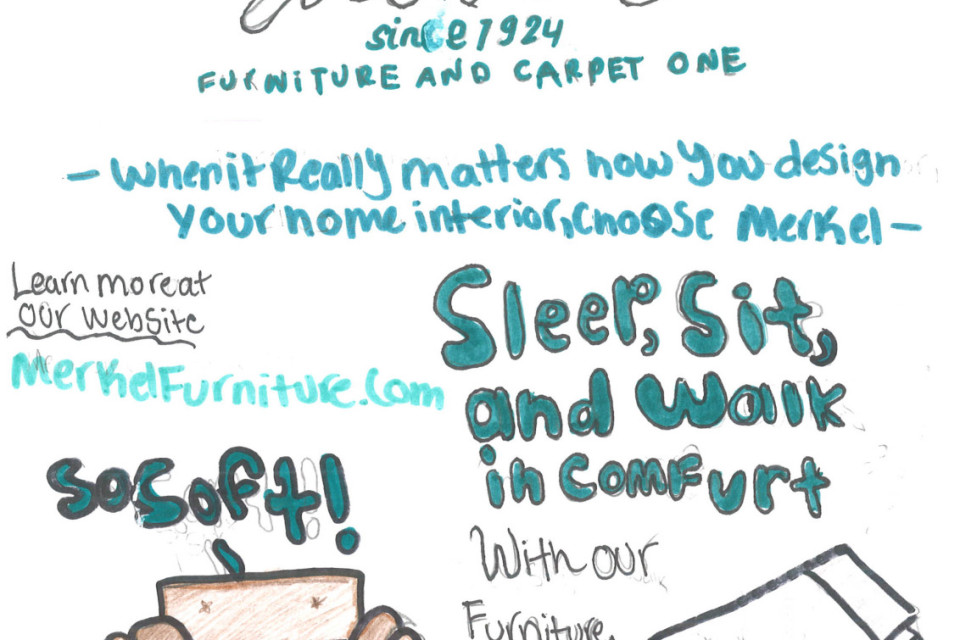 since 1924
FURNITURE AND CARPET ONE
- When it Really matters how you design
your home interior, choose Merkel -
Learn more at
our website
MerkelFurniture.com
Sleep, Sit,
and Walk
in Comfurt
So Soft!
With our
Furniture,